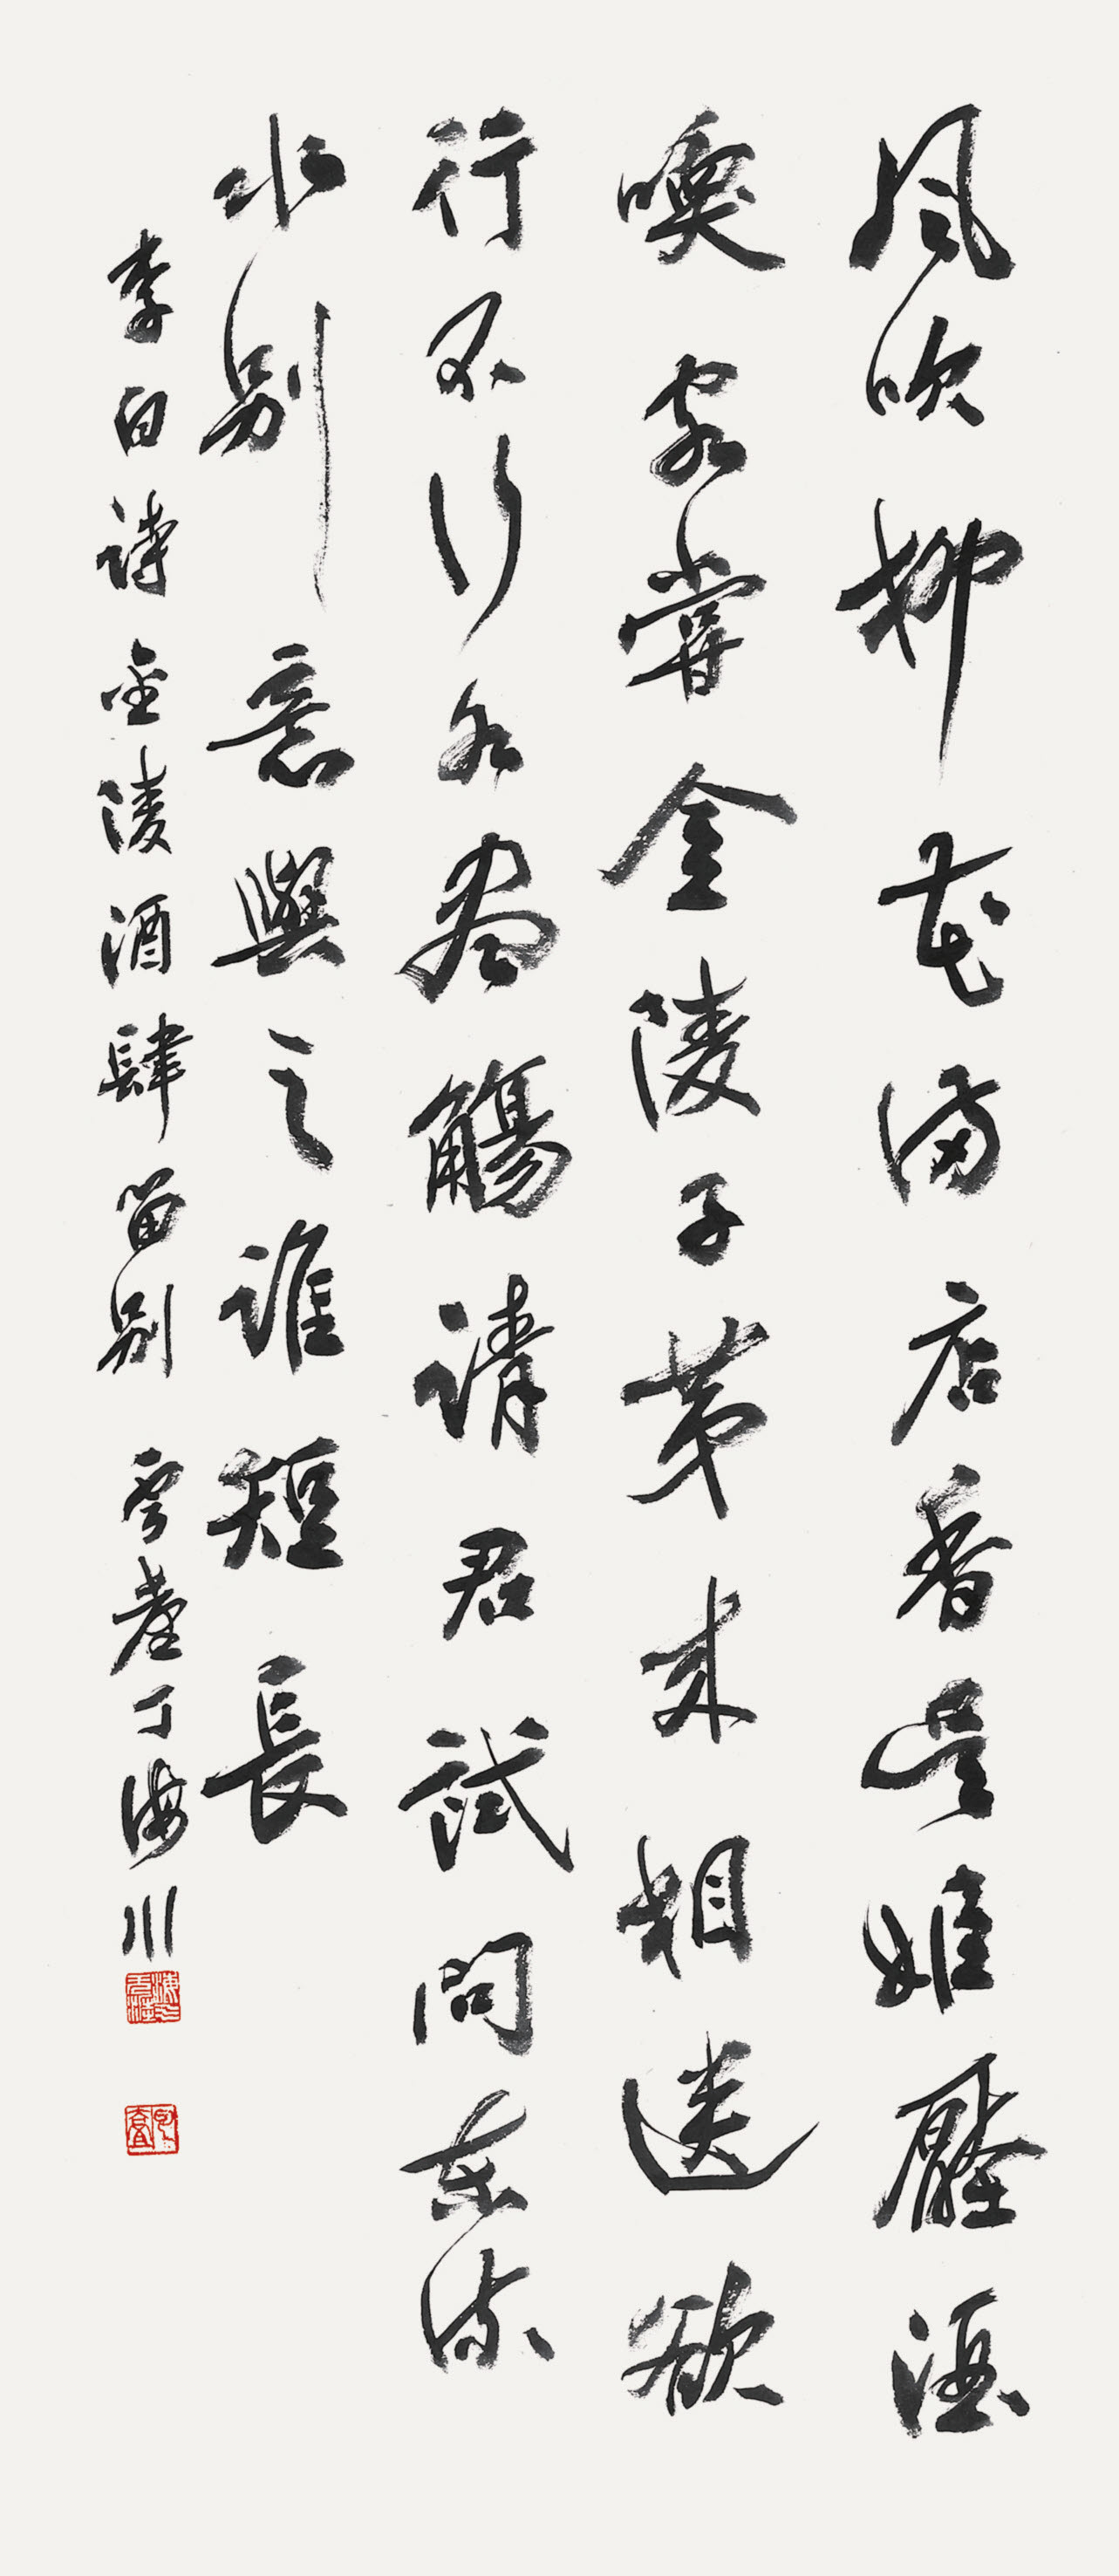 風吹柳花滿店香吳姬壓酒
喚客嘗金陵子弟來相送欲
行不行各盡觴請君試問東流
水別意與之誰短長
李白詩金陵酒肆留別 雲崖丁海川